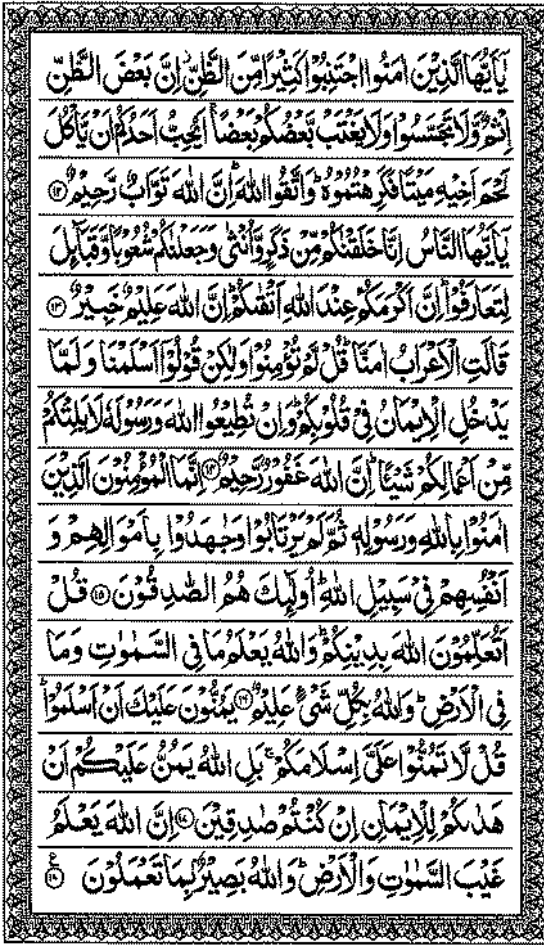 يٰۤاَيُّهَا الَّذِيْنَ اٰمَنُوا اجْتَنِبُوْا كَثِيْرًا مِّنَ الظَّنِّ ؗ اِنَّ بَعْضَ الظَّنِّ
اِثْمٌ وَّلَا تَجَسَّسُوْا وَلَا يَغْتَبْ بَّعْضُكُمْ بَعْضًا ؕ اَيُحِبُّ اَحَدُكُمْ اَنْ يَّاْكُلَ
لَحْمَ اَخِيْهِ مَيْتًا فَكَرِهْتُمُوْهُ ؕ وَاتَّقُوا اللّٰهَ ؕ اِنَّ اللّٰهَ تَوَّابٌ رَّحِيْمٌ ۝۱۲
يٰۤاَيُّهَا النَّاسُ اِنَّا خَلَقْنٰكُمْ مِّنْ ذَكَرٍ وَّاُنْثٰى وَجَعَلْنٰكُمْ شُعُوْبًا وَّقَبَآئِلَ
لِتَعَارَفُوْا ؕ اِنَّ اَكْرَمَكُمْ عِنْدَ اللّٰهِ اَتْقٰىكُمْ ؕ اِنَّ اللّٰهَ عَلِيْمٌ خَبِيْرٌ ۝۱۳
قَالَتِ الْاَعْرَابُ اٰمَنَّا ؕ قُلْ لَّمْ تُؤْمِنُوْا وَلٰكِنْ قُوْلُوْۤا اَسْلَمْنَا وَلَمَّا
يَدْخُلِ الْاِيْمَانُ فِيْ قُلُوْبِكُمْ ؕ وَاِنْ تُطِيْعُوا اللّٰهَ وَرَسُوْلَهٗ لَا يَلِتْكُمْ
مِّنْ اَعْمَالِكُمْ شَيْـًٔا ؕ اِنَّ اللّٰهَ غَفُوْرٌ رَّحِيْمٌ ۝۱۴ اِنَّمَا الْمُؤْمِنُوْنَ الَّذِيْنَ
اٰمَنُوْا بِاللّٰهِ وَرَسُوْلِهٖ ثُمَّ لَمْ يَرْتَابُوْا وَجٰهَدُوْا بِاَمْوَالِهِمْ وَ
اَنْفُسِهِمْ فِيْ سَبِيْلِ اللّٰهِ ؕ اُولٰٓئِكَ هُمُ الصّٰدِقُوْنَ ۝۱۵ قُلْ
اَتُعَلِّمُوْنَ اللّٰهَ بِدِيْنِكُمْ ؕ وَاللّٰهُ يَعْلَمُ مَا فِي السَّمٰوٰتِ وَمَا
فِي الْاَرْضِ ؕ وَاللّٰهُ بِكُلِّ شَيْءٍ عَلِيْمٌ ۝۱۶ يَمُنُّوْنَ عَلَيْكَ اَنْ اَسْلَمُوْا ؕ
قُلْ لَّا تَمُنُّوْا عَلَيَّ اِسْلَامَكُمْ ۚ بَلِ اللّٰهُ يَمُنُّ عَلَيْكُمْ اَنْ
هَدٰىكُمْ لِلْاِيْمَانِ اِنْ كُنْتُمْ صٰدِقِيْنَ ۝۱۷ اِنَّ اللّٰهَ يَعْلَمُ
غَيْبَ السَّمٰوٰتِ وَالْاَرْضِ ؕ وَاللّٰهُ بَصِيْرٌۢ بِمَا تَعْمَلُوْنَ ۝۱۸ ع